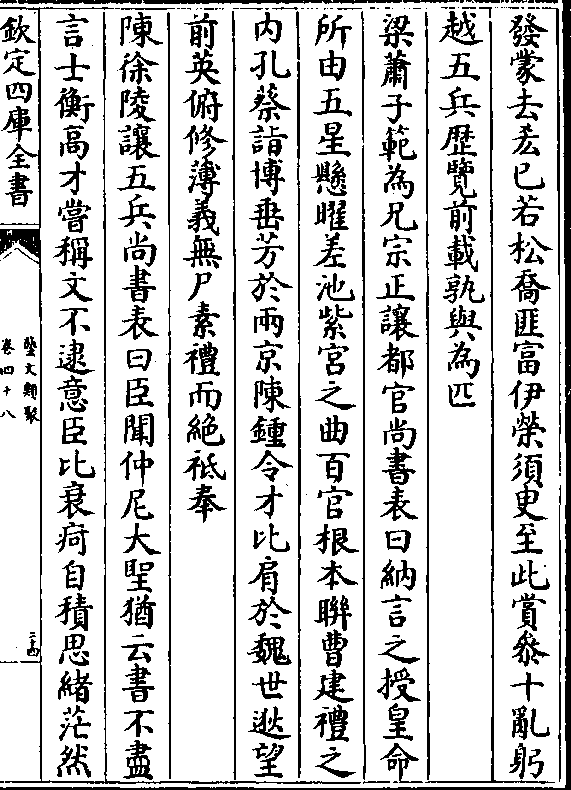 發蒙去吝已若松喬匪富伊榮須臾至此賞叅十亂躬
越五兵歴覽前載孰與為匹
梁蕭子範為兄宗正讓都官尚書表曰納言之授皇命
所由五星懸曜差池紫宮之曲百官根本聨曹建禮之
内孔蔡詣博垂芳於兩京陳鍾令才比肩於魏世逖望
前英俯修薄義無尸素禮而絶祗奉
陳徐陵讓五兵尚書表曰臣聞仲尼大聖猶云書不盡
言士衡高才嘗稱文不逮意臣比衰疴自積思緒茫然
欽定四庫全書
藝文類聚
卷四十八
二十四